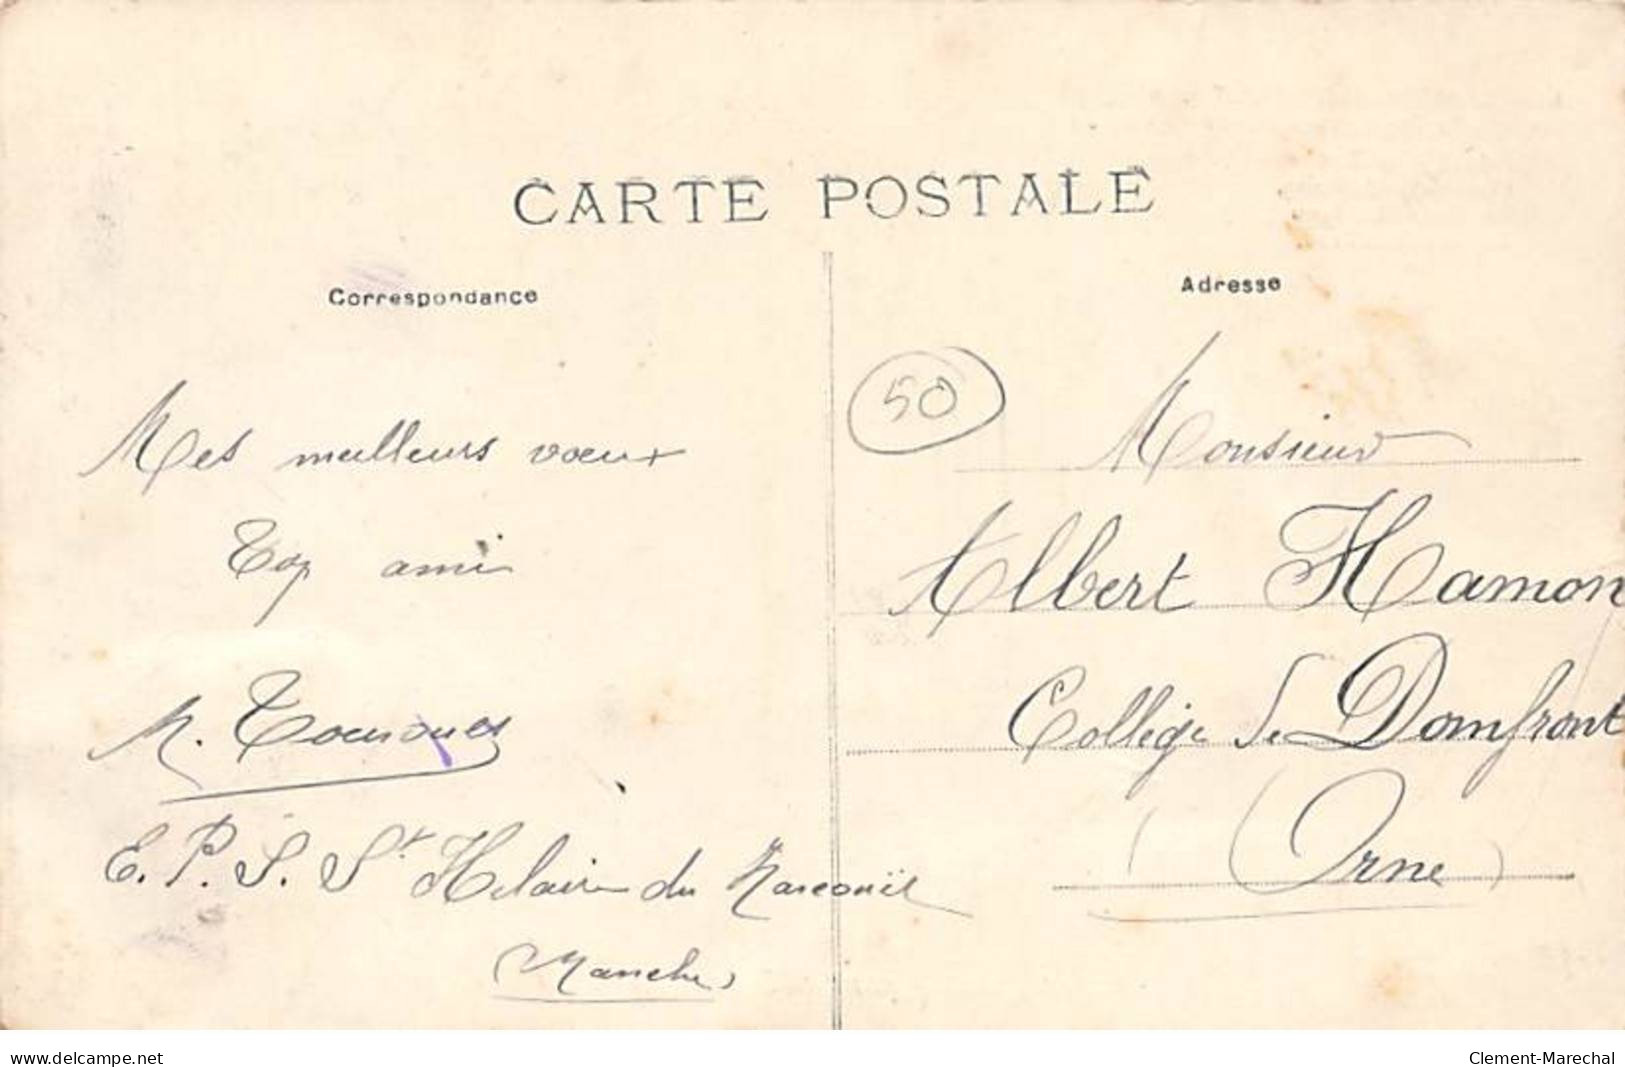 CARTE POSTALE
Correspondance
Adresse
50
Mes meilleurs voeux
ami
Monsieur
Albert Hamon
Collège de Domfront
(Orne)
E. P. S. St Hilaire du
(Manche)
www.delcampe.net
Clement-Marechal